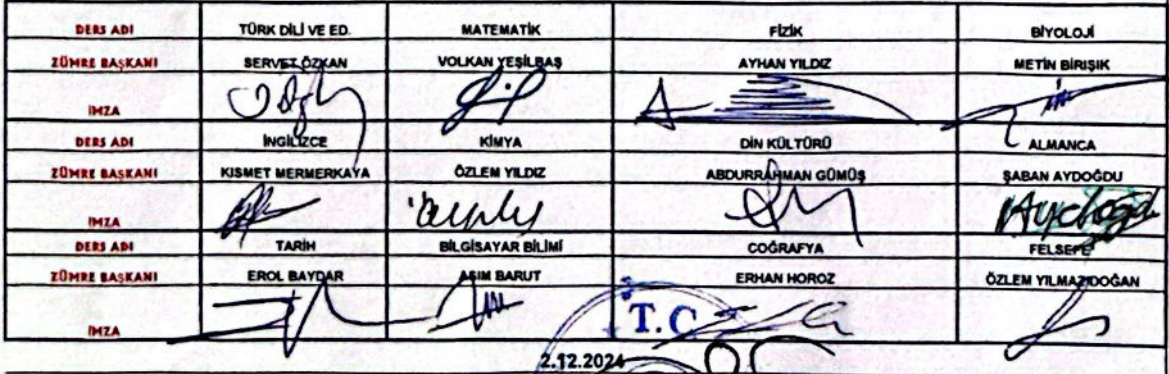 DERS ADI TÜRK DİLİ VE ED. MATEMATİK FİZİK BİYOLOJİ
ZÜMRE BAŞKANI SERVET ÖZKAN VOLKAN YEŞİLBAŞ AYHAN YILDIZ METİN BİRIŞIK
İMZA
DERS ADI İNGİLİZCE KİMYA DİN KÜLTÜRÜ ALMANCA
ZÜMRE BAŞKANI KISMET MERMERKAYA ÖZLEM YILDIZ ABDURRAHMAN GÜMÜŞ ŞABAN AYDOĞDU
İMZA
DERS ADI TARİH BİLGİSAYAR BİLİMİ COĞRAFYA FELSEFE
ZÜMRE BAŞKANI EROL BAYDAR ASIM BARUT ERHAN HOROZ ÖZLEM YILMAZİDOĞAN
İMZA T.C
2.12.2024